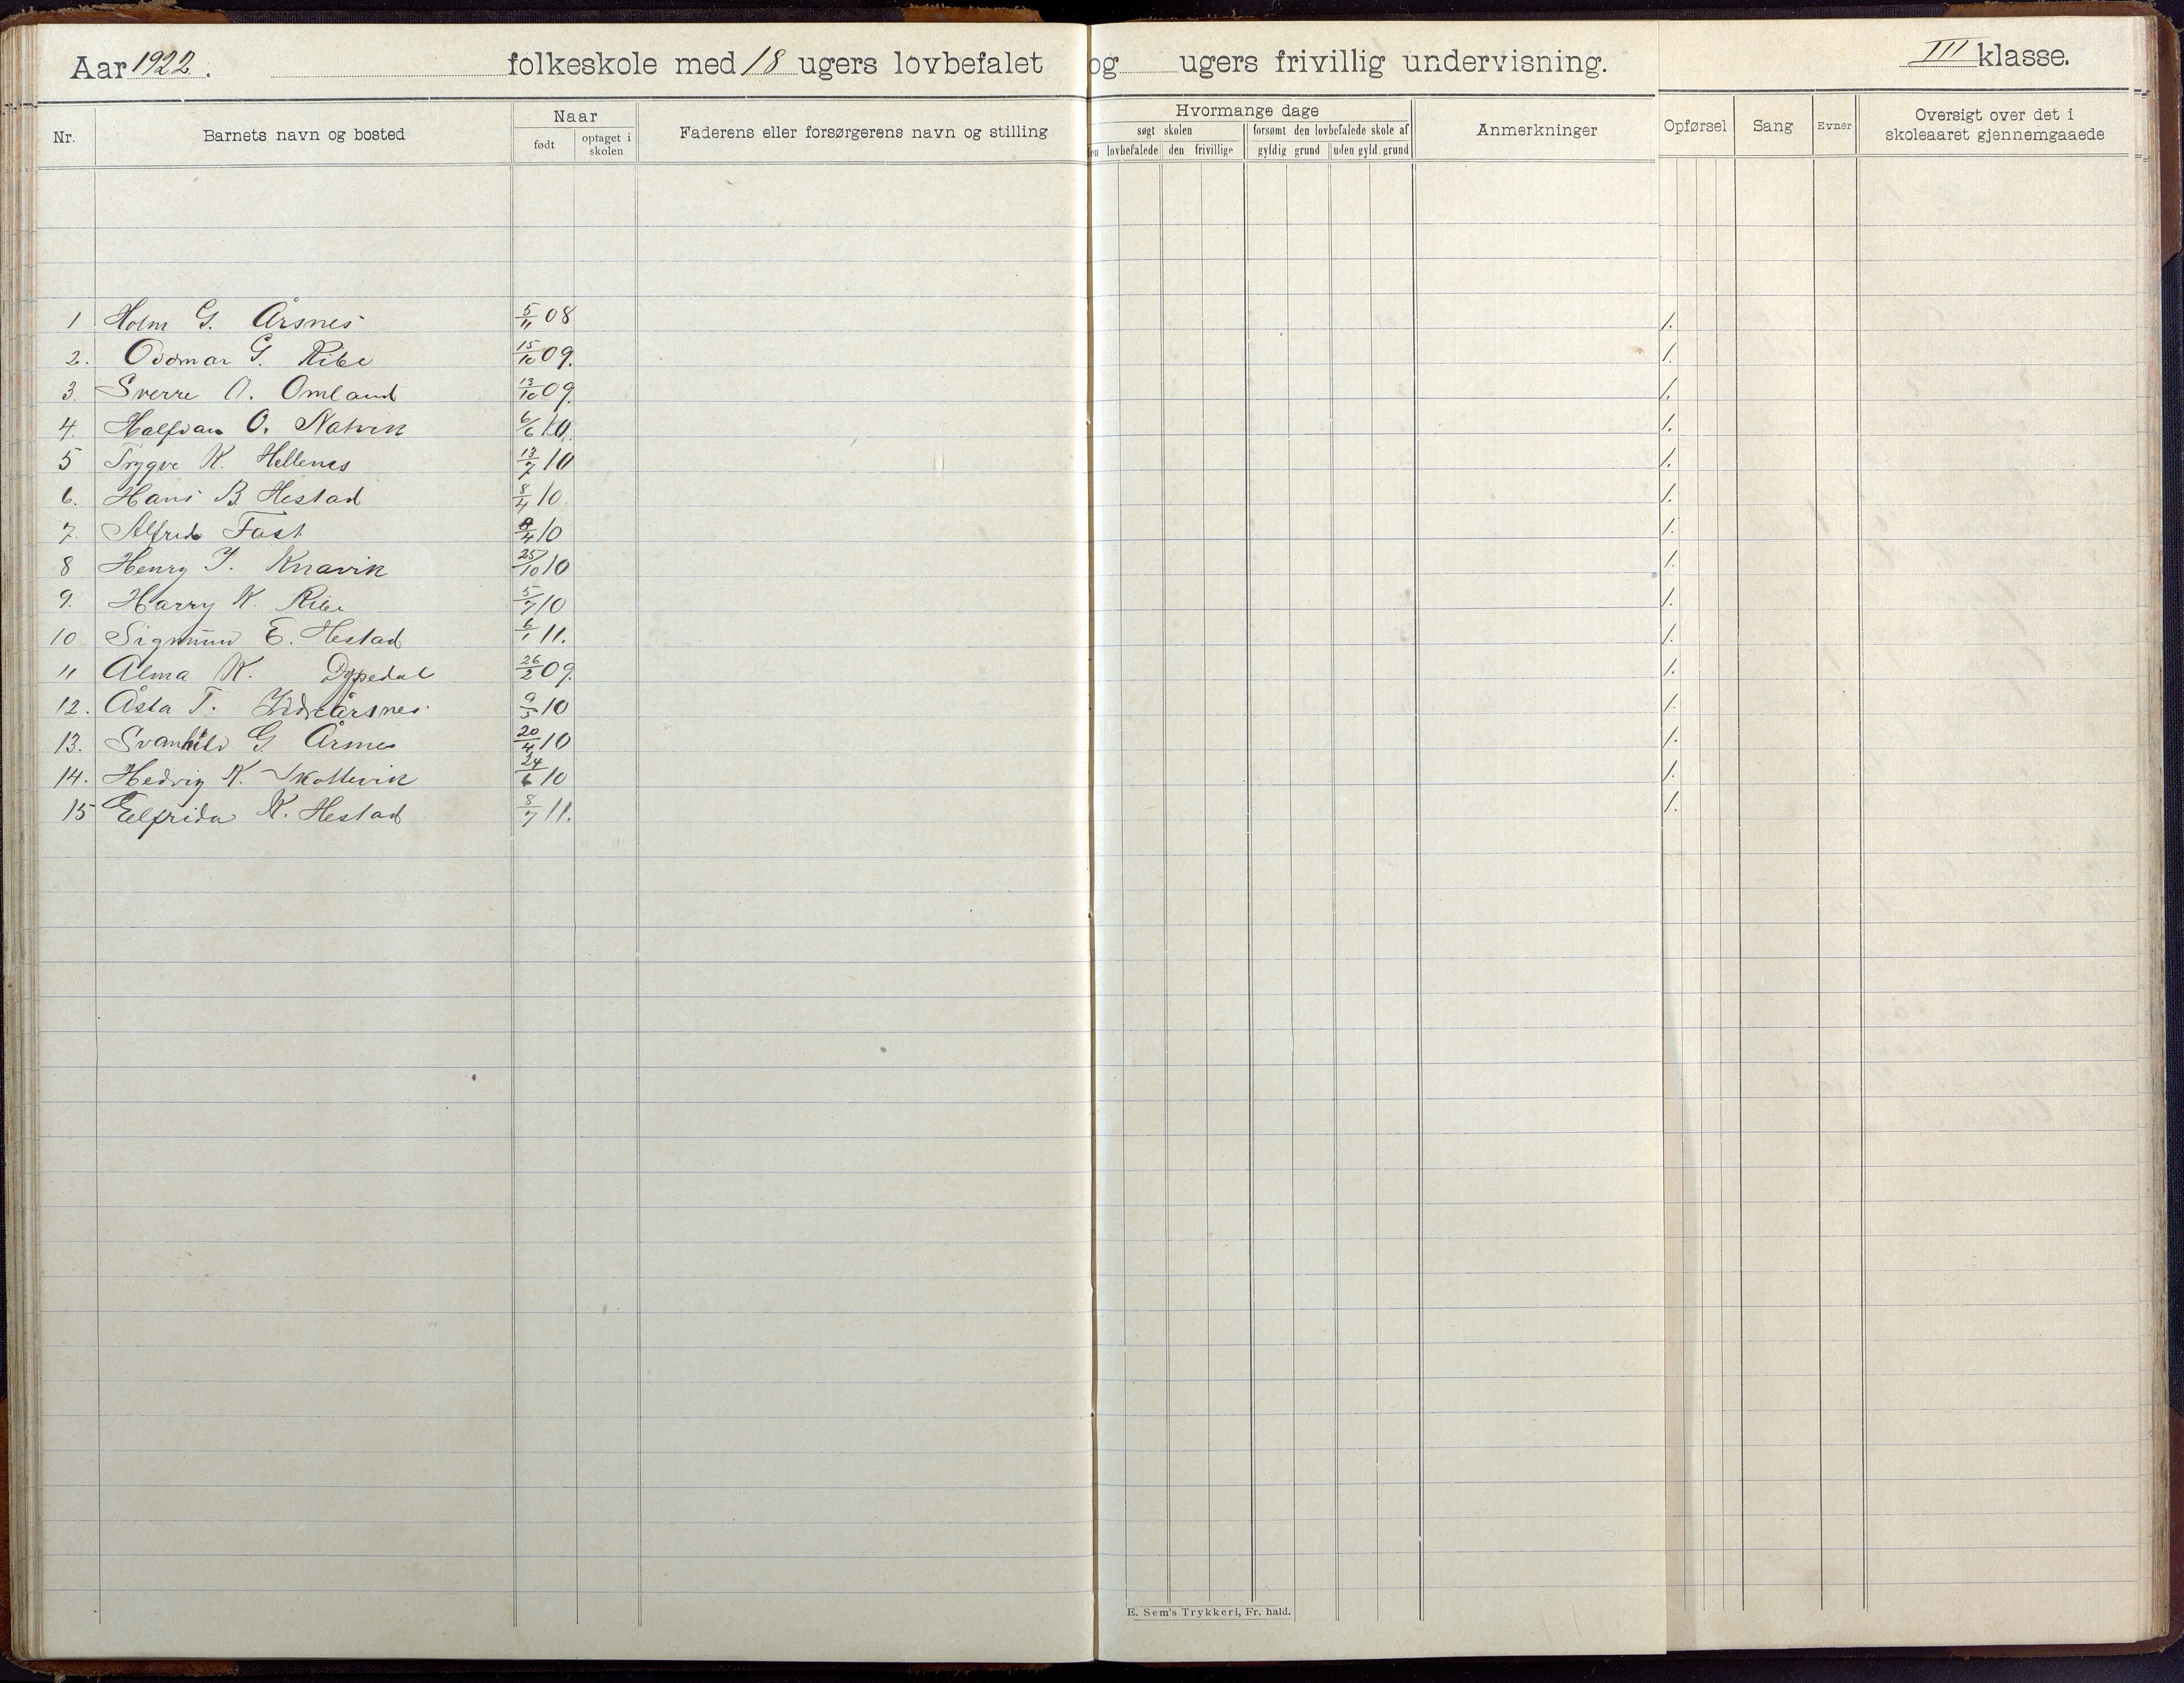 Aar 1922. folkeskole med 18 ugers lovbefalet og ugers frivillig undervisning. III klasse.
Nr. Barnets navn og bosted Naar født optaget i skolen Faderens eller forsørgerens navn og stilling Hvormange dage søgt skolen en lovbefalede den frivillige forsømt den lovbefalede skole af gyldig grund uden gyld. grund Anmerkninger Opførsel Sang Evner Oversigt over det i skoleaaret gjennemgaaede
1 Holm G. Årsnes 5/11 08 1.
2. Oddmar G. Ribe 15/10 09. 1.
3. Sverre O. Omland 13/10 09. 1.
4. Halfdan O. Natvik 6/6 10. 1.
5 Trygve K. Hellenes 13/7 10 1.
6. Hans B. Hestad 8/4 10. 1.
7. Alfred Fast 8/4 10 1.
8 Henry J. Knavik 25/10 10 1.
9. Harry K. Ribe 5/7 10 1.
10 Sigmund E. Hestad 6/1 11. 1.
11 Alma K. Dypedal 26/2 09. 1.
12. Åsta T. Årsnes 9/5 10 1.
13. Svanhild G Årsnes 20/4 10 1.
14. Hedvig K. Skottevik 24/6 10 1.
15 Elfrida K. Hestad 8/7 11. 1.
E. Sem's Trykkeri, Fr. hald.